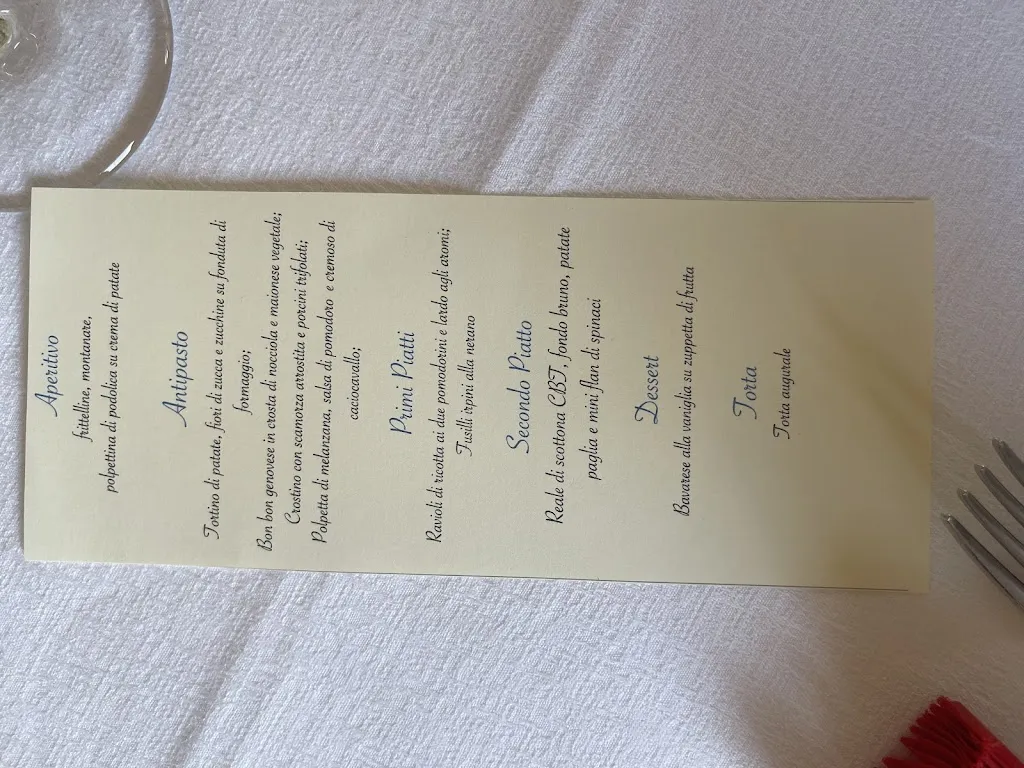 Aperitivo
frittelline, montanare,
polpettina di podolica su crema di patate
Antipasto
Tortino di patate, fiori di zucca e zucchine su fonduta di
formaggio;
Bon bon genovese in crosta di nocciola e maionese vegetale;
Crostino con scamorza arrostita e porcini trifolati;
Polpetta di melanzana, salsa di pomodoro e cremoso di
caciocavallo;
Primi Piatti
Ravioli di ricotta ai due pomodorini e lardo agli aromi;
Tusilli irpini alla nerano
Secondo Piatto
Reale di scottona CBT, fondo bruno, patate
paglia e mini flan di spinaci
Dessert
Bavarese alla vaniglia su zuppetta di frutta
Torta
Torta augurale